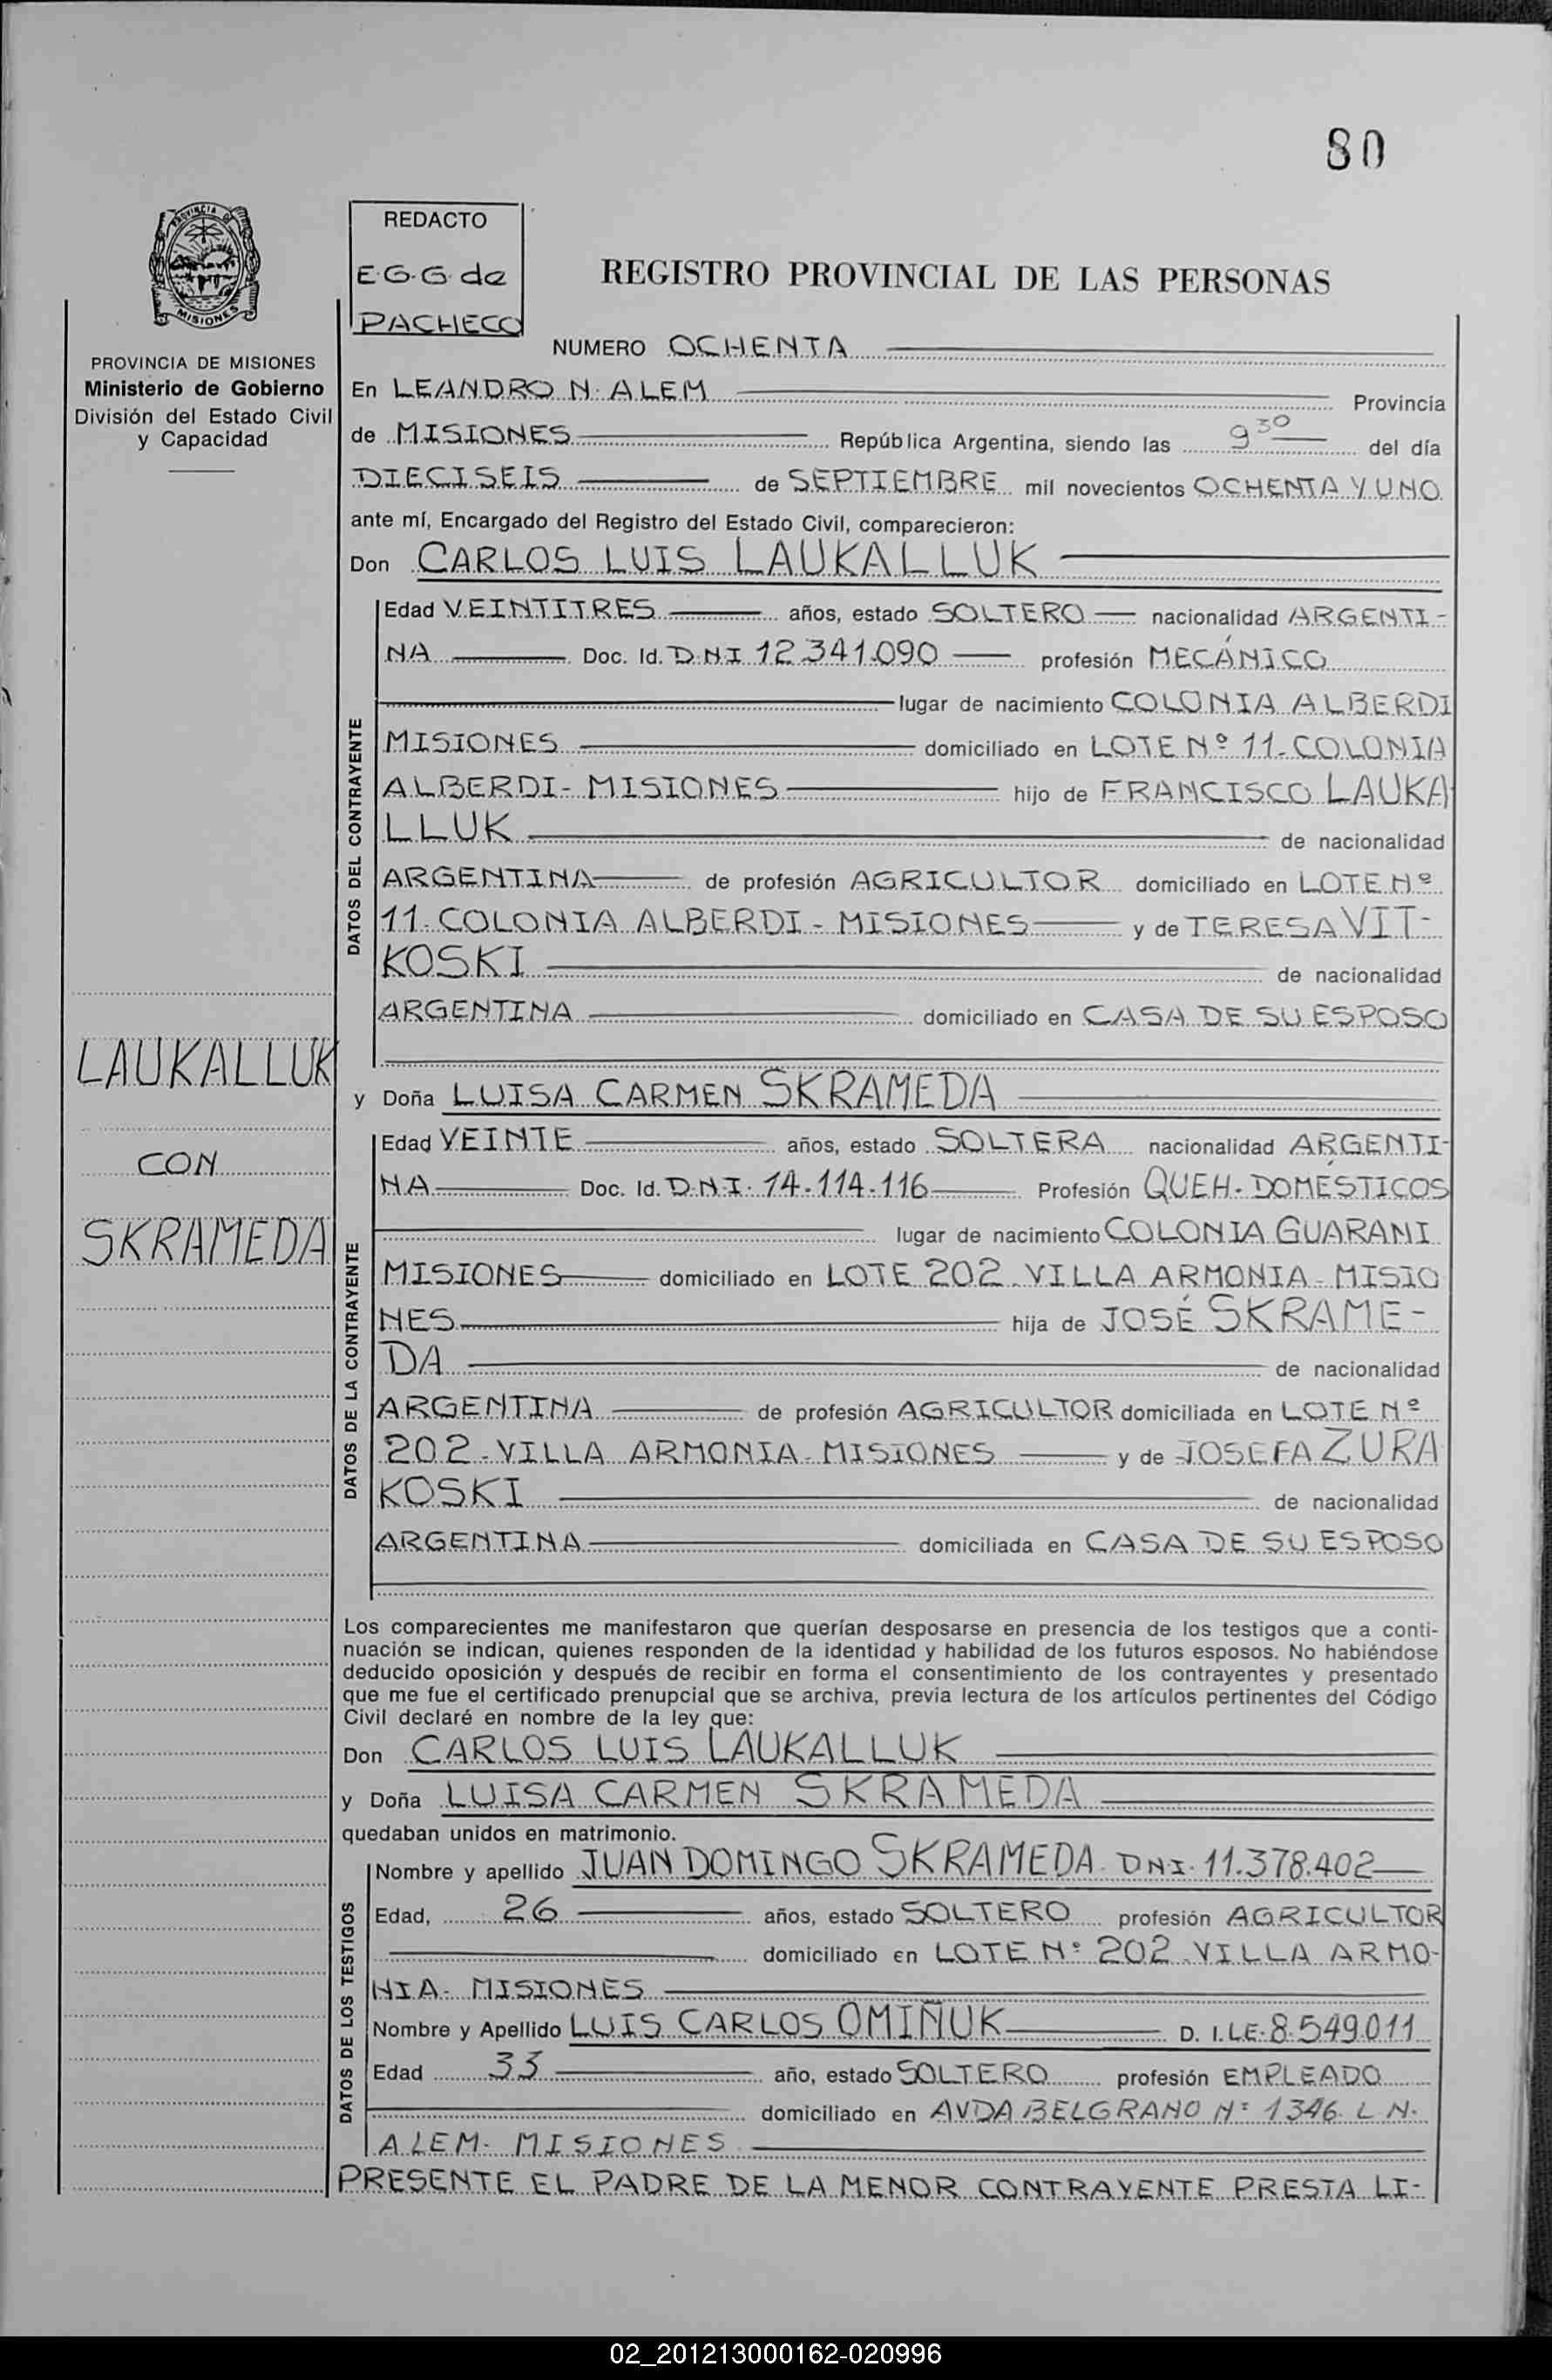 80
PROVINCIA DE
MISIONES
PROVINCIA DE MISIONES
Ministerio de Gobierno
División del Estado Civil
y Capacidad
LAUKALLUK
CON
SKRAMEDA
REDACTO
E.G.G de
PACHECO
REGISTRO PROVINCIAL DE LAS PERSONAS
NUMERO OCHENTA
En LEANDRO N. ALEM Provincia
de MISIONES República Argentina, siendo las 9 30 del día
DIECISEIS de SEPTIEMBRE mil novecientos OCHENTA Y UNO
ante mí, Encargado del Registro del Estado Civil, comparecieron:
Don CARLOS LUIS LAUKALLUK
DATOS DEL CONTRAYENTE
Edad VEINTITRES años, estado SOLTERO nacionalidad ARGENTI-
NA Doc. Id. D.N.I 12.341.090 profesión MECÁNICO
lugar de nacimiento COLONIA ALBERDI
MISIONES domiciliado en LOTE Nº 11-COLONIA
ALBERDI- MISIONES hijo de FRANCISCO LAUKA
LLUK de nacionalidad
ARGENTINA de profesión AGRICULTOR domiciliado en LOTE Nº
11-COLONIA ALBERDI - MISIONES y de TERESA VIT-
KOSKI de nacionalidad
ARGENTINA domiciliado en CASA DE SU ESPOSO
y Doña LUISA CARMEN SKRAMEDA
DATOS DE LA CONTRAYENTE
Edad VEINTE años, estado SOLTERA nacionalidad ARGENTI-
NA Doc. Id. D.N.I. 14.114.116 Profesión QUEH. DOMÉSTICOS
lugar de nacimiento COLONIA GUARANI
MISIONES domiciliado en LOTE 202-VILLA ARMONIA-MISIO
NES hija de JOSÉ SKRAME-
DA de nacionalidad
ARGENTINA de profesión AGRICULTOR domiciliada en LOTE Nº
202-VILLA ARMONIA-MISIONES y de JOSEFA ZURA
KOSKI de nacionalidad
ARGENTINA domiciliada en CASA DE SU ESPOSO
Los comparecientes me manifestaron que querían desposarse en presencia de los testigos que a conti-
nuación se indican, quienes responden de la identidad y habilidad de los futuros esposos. No habiéndose
deducido oposición y después de recibir en forma el consentimiento de los contrayentes y presentado
que me fue el certificado prenupcial que se archiva, previa lectura de los artículos pertinentes del Código
Civil declaré en nombre de la ley que:
Don CARLOS LUIS LAUKALLUK
y Doña LUISA CARMEN SKRAMEDA
quedaban unidos en matrimonio.
DATOS DE LOS TESTIGOS
Nombre y apellido JUAN DOMINGO SKRAMEDA DNI. 11.378.402
Edad, 26 años, estado SOLTERO profesión AGRICULTOR
domiciliado en LOTE Nº 202-VILLA ARMO-
NIA- MISIONES
Nombre y Apellido LUIS CARLOS OMIÑUK D. I. LE. 8.549.011
Edad 33 año, estado SOLTERO profesión EMPLEADO
domiciliado en AVDA BELGRANO Nº 1346 L N.
ALEM- MISIONES
PRESENTE EL PADRE DE LA MENOR CONTRAYENTE PRESTA LI-
02_201213000162-020996